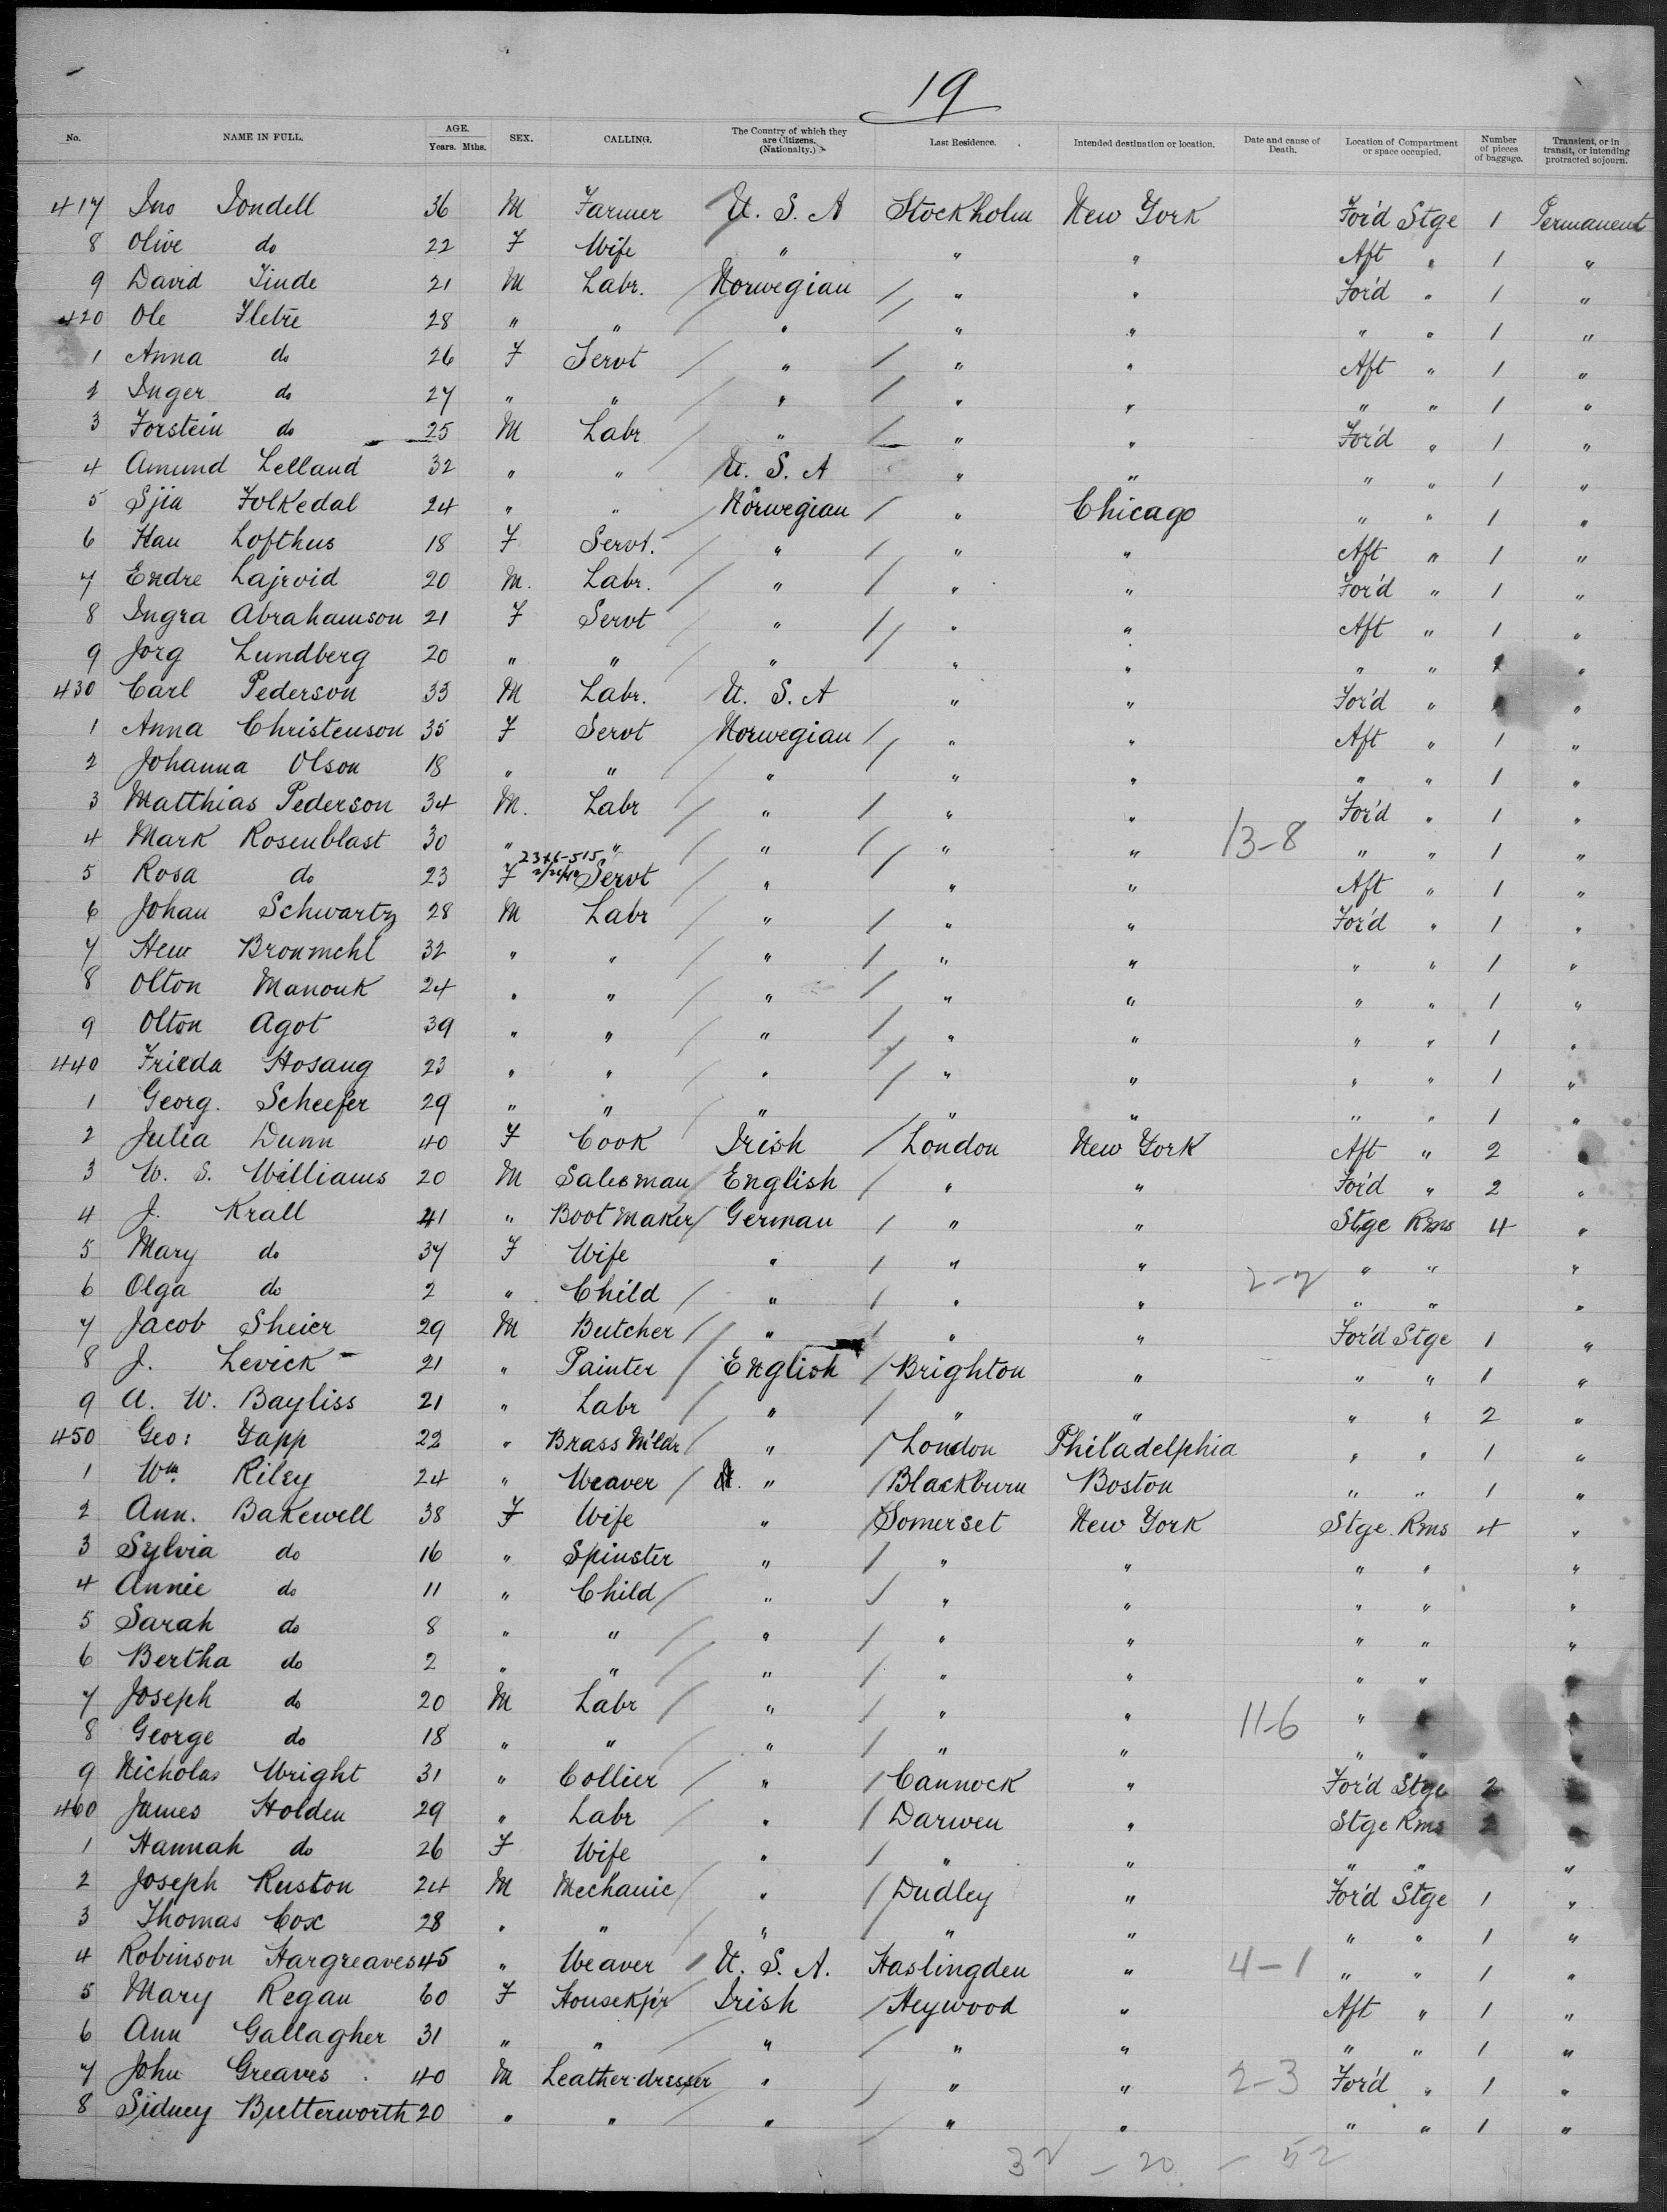 19
No. NAME IN FULL. AGE. Years. Mths. SEX. CALLING. The Country of which they are Citizens. (Nationalty.) Last Residence. Intended destination or location. Date and cause of Death. Location of Compartment or space occupied. Number of pieces of baggage. Transient, or in transit, or intending protracted sojourn.
417 Jno Iondell 36 M Farmer U. S. A Stockholm New York For'd Stge 1 Permanent
8 Olive do 22 F Wife " " " Aft " 1 "
9 David Tinde 21 M Labr. Norwegian " " For'd " 1 "
420 Ole 28 " " " " " " " 1 "
1 Anna do 26 F Servt " " " Aft " 1 "
2 Inger do 27 " " " " " " " 1 "
3 Torstein do 25 M Labr " " " For'd " 1 "
4 Amund Lelland 32 " " U. S. A " " " " 1 "
5 Sjia Folkedal 24 " " Norwegian " Chicago " " 1 "
6 Han Lofthus 18 F Servt. " " " Aft " 1 "
7 Endre Lajrvid 20 M. Labr. " " " For'd " 1 "
8 Ingra Abrahamson 21 F Servt " " " Aft " 1 "
9 Jorg Lundberg 20 " " " " " " " 1 "
430 Carl Pederson 33 M Labr. U. S. A " " For'd " 1 "
1 Anna Christenson 35 F Servt Norwegian " " Aft " 1 "
2 Johanna Olson 18 " " " " " " " 1 "
3 Matthias Pederson 34 M. Labr " " " For'd " 1 "
4 Mark Rosenblast 30 " " " " " 13-8 " " 1 "
2346-515
5 Rosa do 23 F Servt " " " Aft " 1 "
6 Johan Schwartz 28 M Labr " " " For'd " 1 "
7 Hew Bronmehl 32 " " " " " " " 1 "
8 Olton Manouk 24 " " " " " " " 1 "
9 Olton Agot 39 " " " " " " " 1 "
440 Frieda Hosang 23 " " " " " " " 1 "
1 Georg. Scheefer 29 " " " " " " " 1 "
2 Julia Dunn 40 F Cook Irish London New York Aft " 2 "
3 W. S. Williams 20 M Salesman English " " For'd " 2 "
4 J. Krall 41 " Boot Maker German " " Stge Rms 4 "
5 Mary do 37 F Wife " " " " " "
6 Olga do 2 " Child " " " 2-2 " " "
7 Jacob Sheier 29 M Butcher " " " For'd Stge 1 "
8 J. Levick 21 " Painter English Brighton " " " 1 "
9 A. W. Bayliss 21 " Labr " " " " " 2 "
450 Geo: Tapp 22 " Brass M'ldr " London Philadelphia " " 1 "
1 Wm. Riley 24 " Weaver " Blackburn Boston " " 1 "
2 Ann. Bakewell 38 F Wife " Somerset New York Stge. Rms 4 "
3 Sylvia do 16 " Spinster " " " " " "
4 Annie do 11 " Child " " " " " "
5 Sarah do 8 " " " " " " " "
6 Bertha do 2 " " " " " " " "
7 Joseph do 20 M Labr " " " 11-6 " " "
8 George do 18 " " " " " " " "
9 Nicholas Wright 31 " Collier " Cannock " For'd Stge 2 "
460 James Holden 29 " Labr " Darwen " Stge Rms 2 "
1 Hannah do 26 F Wife " " " " " "
2 Joseph Ruston 24 M Mechanic " Dudley " For'd Stge 1 "
3 Thomas Cox 28 " " " " " " " 1 "
4 Robinson Hargreaves 45 " Weaver U. S. A. Haslingden " 4-1 " " 1 "
5 Mary Regan 60 F Housekp'r Irish Heywood " Aft " 1 "
6 Ann Gallagher 31 " " " " " " " 1 "
7 John Greaves 40 M Leather dresser " " " 2-3 For'd " 1 "
8 Sidney Butterworth 20 " " " " " " " 1 "
32 - 20 - 52